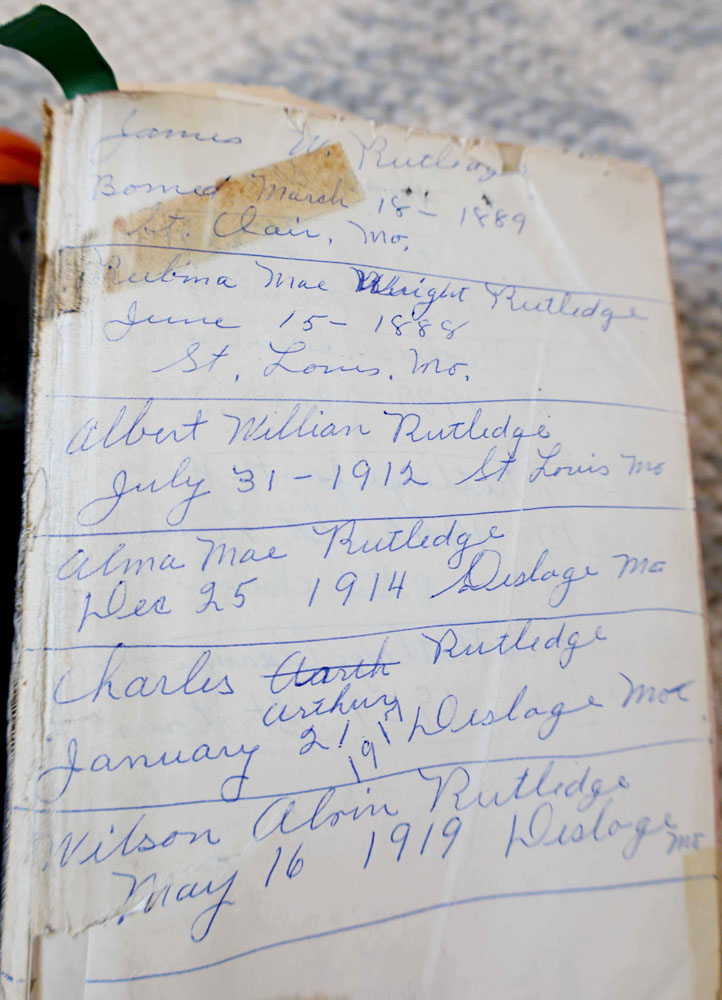 James W. Rutledge
Borned March 18 - 1889
St. Clair, Mo.
Rubina Mae Wright Rutledge
June 15 - 1888
St. Louis. Mo.
Albert Willian Rutledge
July 31 - 1912 St Louis Mo
Alma Mae Rutledge
Dec 25 1914 Desloge Mo
Charles Aarth Rutledge
Arthur
January 21 1917 Desloge Mo
Wilson Alvin Rutledge
May 16 1919 Desloge Mo